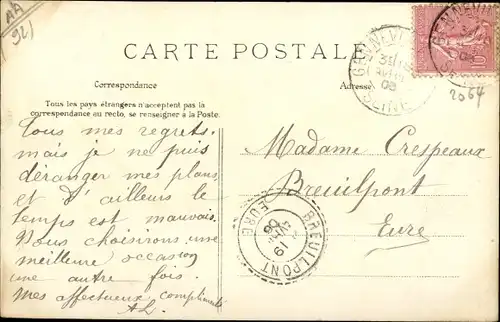 AA
921
CARTE POSTALE
Correspondance
Adresse
Tous les pays étrangers n'acceptent pas la
correspondance au recto, se renseigner à la Poste.
2064
Tous mes regrets.
mais je ne puis
déranger mes plans
et d'ailleurs le
temps est mauvais.
Nous choisirons une
meilleure occasion
une autre fois.
Mes affectueux compliments
AL.
Madame Crespeaux
Breuilpont
Eure
BREUILPONT
EURE
19
08
GENNEVI
SEINE
31
08
10